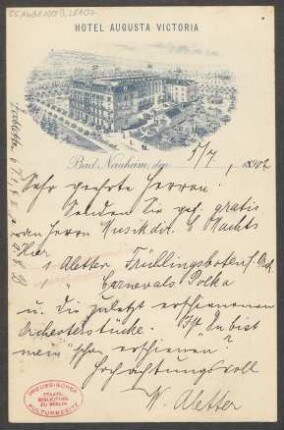 55 Nachl 100/B,
HOTEL AUGUSTA VICTORIA
Bad Nauheim, den 5/7 1902
Sehr geehrte Herren!
Senden Sie gef. gratis
an Herrn Musikdir. C. Machts
Hier
1 Aletter, Frühlingsboten f. Orch.
1 " Carnevals Polka
u. die zuletzt erschienenen
Orchesterstücke. Ist "Du bist
mein" schon erschienen?
Hochachtungsvoll
W. Aletter
PREUSSISCHER
STAATS-
BIBLIOTHEK
ZU BERLIN
KULTURBESITZ